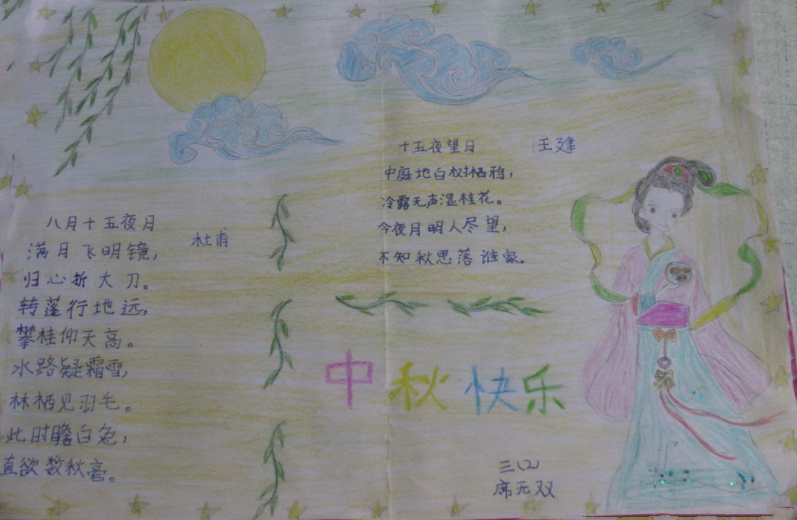 八月十五夜月
杜甫
满月飞明镜，
归心折大刀。
转蓬行地远，
攀桂仰天高。
水路疑霜雪，
林栖见羽毛。
此时瞻白兔，
直欲数秋毫。
十五夜望月 王建
中庭地白树栖鸦，
冷露无声湿桂花。
今夜月明人尽望，
不知秋思落谁家。
中秋快乐
三(2)
席无双